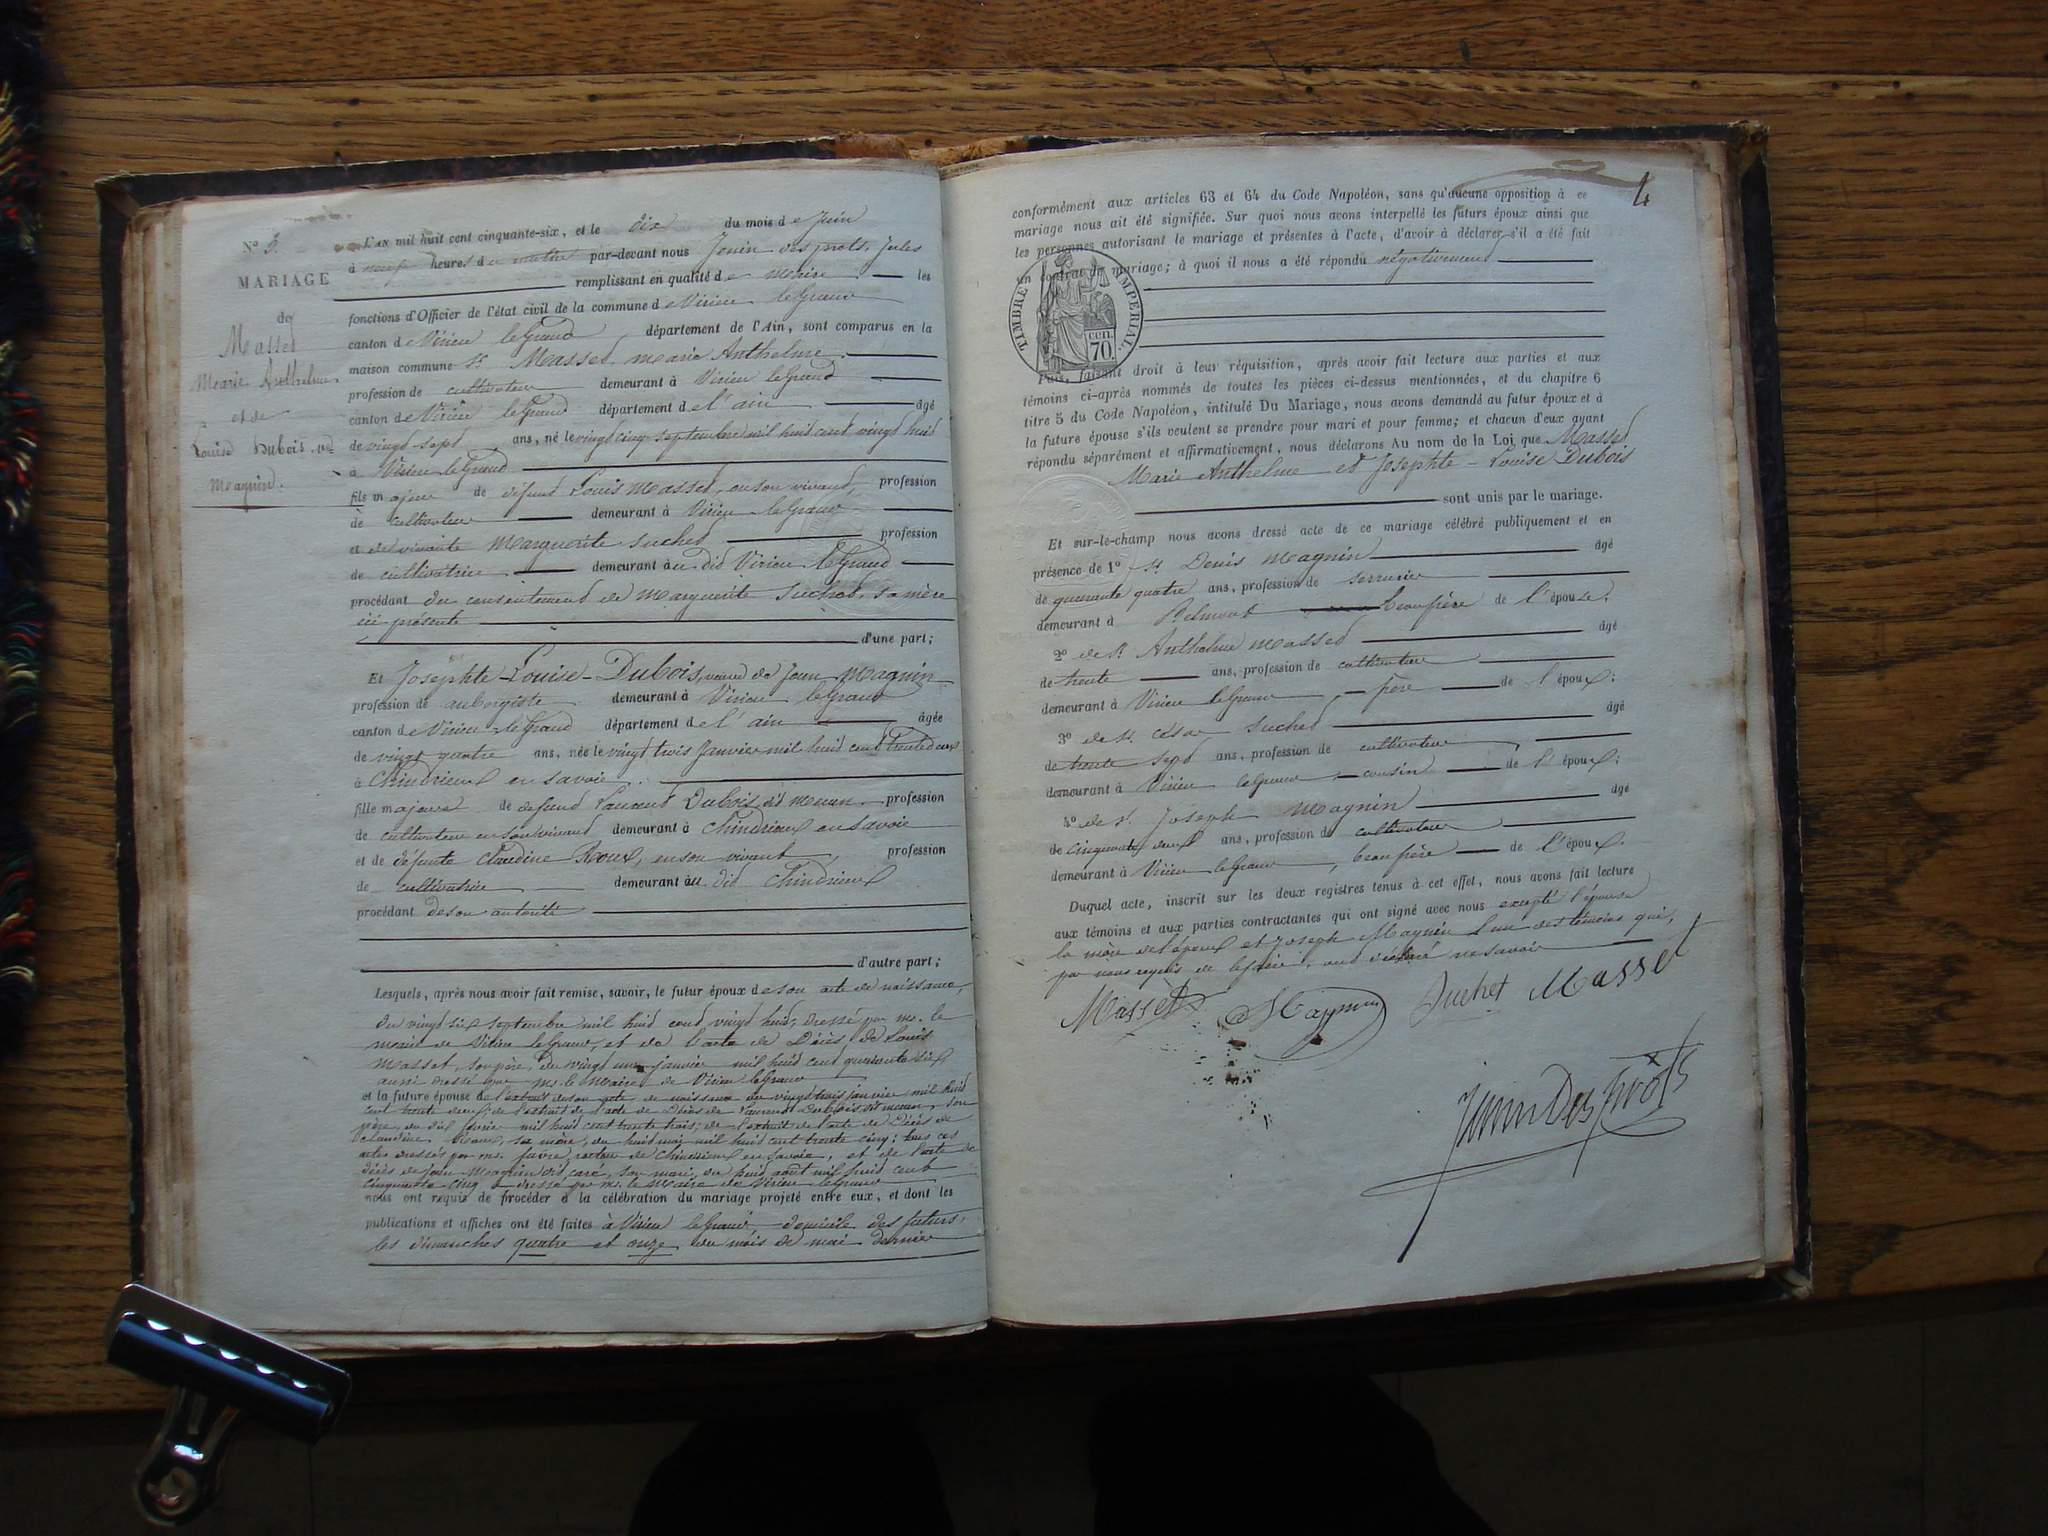 N° 3.
MARIAGE
de
Masset
Marie Anthelme
et de
Louise Dubois ve
Magnin.
L'AN mil huit cent cinquante-six, et le dix du mois de Juin
à neuf heures du matin par-devant nous Jenin des prots, Jules
remplissant en qualité de maire les
fonctions d'Officier de l'état civil de la commune de Virieu le Grand
canton de Virieu le Grand département de l'Ain, sont comparus en la
maison commune sr Masset, marie Anthelme
profession de cultivateur demeurant à Virieu le Grand
canton de Virieu le Grand département de l'ain âgé
de vingt-sept ans, né le vingt cinq septembre mil huit cent vingt huit
à Virieu le Grand
fils majeur de défunt Louis Masset, en son vivant, profession
de cultivateur demeurant à Virieu le Grand
et de vivante Marguerite Suchet profession
de cultivatrice demeurant au dit Virieu le Grand
procédant du consentement de Marguerite Suchet, sa mère
ici présente
d'une part;
Et Josephte-Louise-Dubois, veuve de Jean Magnin
profession de aubergiste demeurant à Virieu le Grand
canton de Virieu-le Grand département de l'ain âgée
de vingt quatre ans, née le vingt trois Janvier mil huit cent trente deux
à Chindrieux en savoie
fille majeure de défunt Laurent Dubois dit Menun profession
de cultivateur en son vivant demeurant à Chindrieux en savoie
et de défunte Claudine Roux, en son vivant profession
de cultivatrice demeurant au dit Chindrieux
procédant de son autorité
d'autre part;
Lesquels, après nous avoir fait remise, savoir, le futur époux de son acte de naissance,
du vingt six septembre mil huit cent vingt huit, dressé par mr. le
maire de Virieu le Grand, et de l'acte de Décès de Louis
Masset, son père, du vingt un janvier mil huit cent quarante six
aussi dressé par mr. le Maire de Virieu le Grand
et la future épouse de l'extrait de son acte de naissance du vingt trois janvier mil huit
cent trente deux; de l'extrait de l'acte de Décès de Laurent Dubois dit menun, son
père, du dix février mil huit cent trente trois; de l'extrait de l'acte de Décès de
Claudine Roux, sa mère, du huit mai mil huit cent trente cinq; tous ces
actes dressés par mr. favre, recteur de Chindrieux en savoie, et de l'acte de
décès de jean Magnin dit carré, son mari, du huit août mil huit cent
cinquante cinq dressé par mr. le Maire de Virieu le Grand
nous ont requis de procéder à la célébration du mariage projeté entre eux, et dont les
publications et affiches ont été faites à Virieu le Grand, domicile des futurs,
les dimanches quatre et onze du mois de mai dernier
4
conformément aux articles 63 et 64 du Code Napoléon, sans qu'aucune opposition à ce
mariage nous ait été signifiée. Sur quoi nous avons interpellé les futurs époux ainsi que
les personnes autorisant le mariage et présentes à l'acte, d'avoir à déclarer s'il a été fait
un contrat de mariage; à quoi il nous a été répondu négativement
TIMBRE IMPÉRIAL.
70 cen.
Puis, faisant droit à leur réquisition, après avoir fait lecture aux parties et aux
témoins ci-après nommés de toutes les pièces ci-dessus mentionnées, et du chapitre 6
titre 5 du Code Napoléon, intitulé Du Mariage, nous avons demandé au futur époux et à
la future épouse s'ils veulent se prendre pour mari et pour femme; et chacun d'eux ayant
répondu séparément et affirmativement, nous déclarons Au nom de la Loi que Masset
Marie Anthelme et Josephte-Louise Dubois
sont unis par le mariage.
Et sur-le-champ nous avons dressé acte de ce mariage célébré publiquement et en
présence de 1° sr Denis Magnin âgé
de quarante quatre ans, profession de serrurier
demeurant à beaufrère de l'épouse;
2° de sr Anthelme Masset âgé
de trente ans, profession de cultivateur
demeurant à Virieu le Grand, frère de l'époux;
3° de sr. César Suchet âgé
de trente sept ans, profession de cultivateur
demeurant à Virieu le Grand, cousin de l'époux;
4° de sr. Joseph Magnin âgé
de cinquante deux ans, profession de cultivateur
demeurant à Virieu le Grand, beaufrère de l'époux.
Duquel acte, inscrit sur les deux registres tenus à cet effet, nous avons fait lecture
aux témoins et aux parties contractantes qui ont signé avec nous excepté l'épouse
la mère de l'époux et Joseph Magnin l'un des témoins qui,
par nous requis de le faire, ont déclaré ne savoir
Masset D Magnin Suchet Masset
Jenin Des Prôts